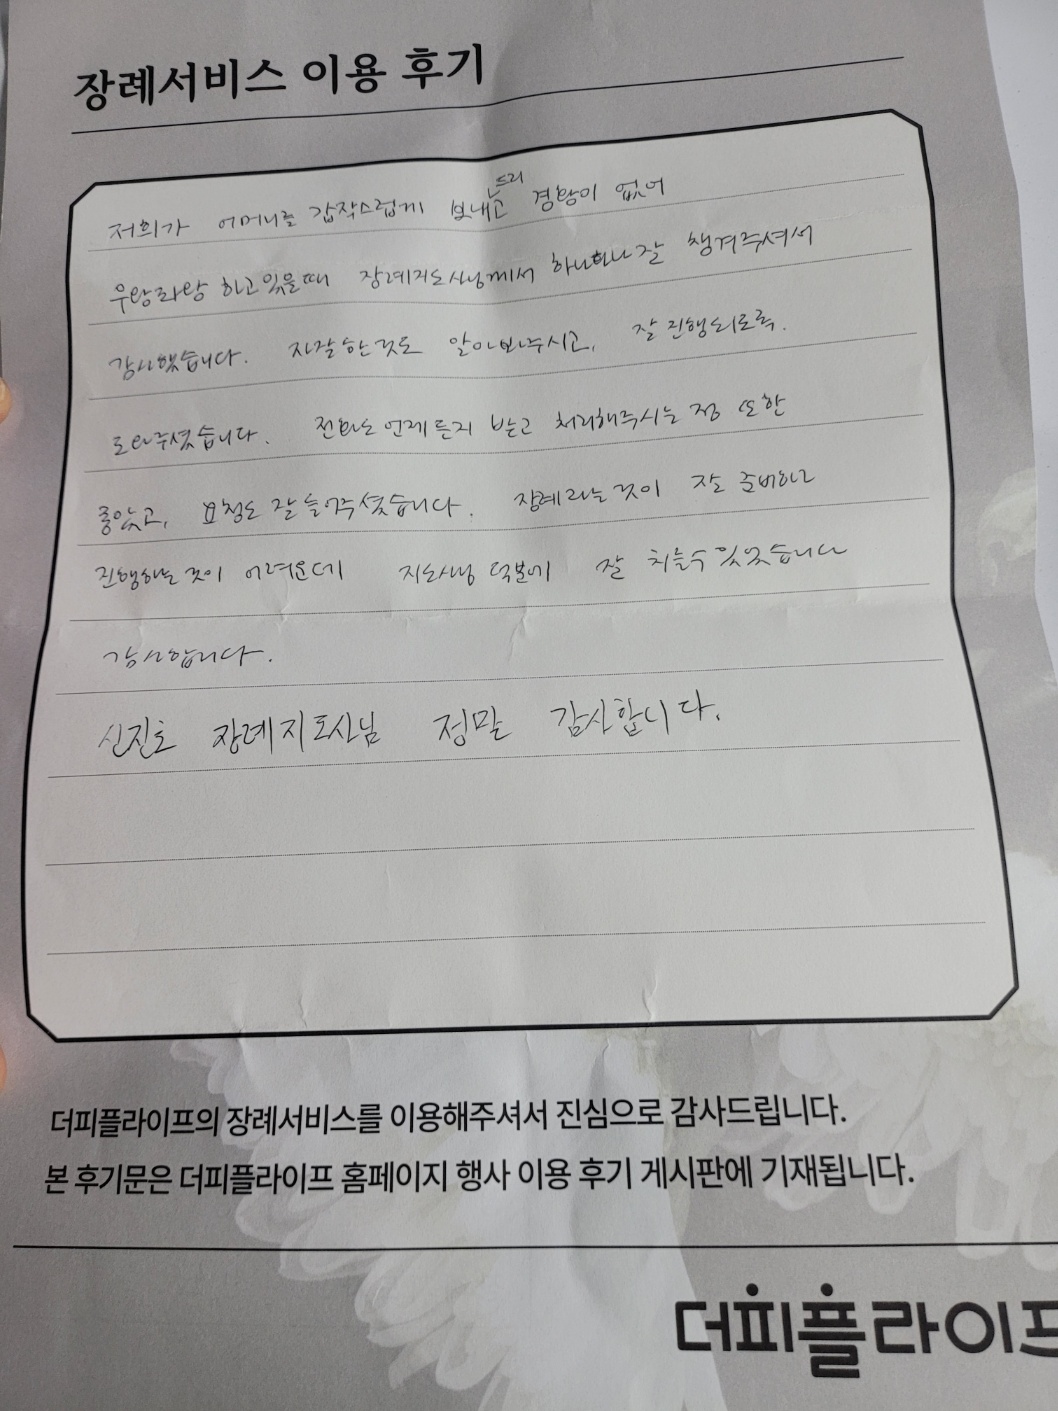 장례서비스 이용 후기
저희가 어머니를 갑작스럽게 보내드리고 경황이 없어
우왕좌왕 하고 있을때 장례지도사님께서 하나하나 잘 챙겨주셔서
감사했습니다. 자잘한것도 알아봐주시고, 잘 진행되도록.
도와주셨습니다. 전화는 언제든지 받고 처리해주시는 점 또한
좋았고, 요청도 잘 들어주셨습니다. 장례라는 것이 잘 준비하고
진행하는 것이 어려운데 지도사님 덕분에 잘 치를수 있었습니다
감사합니다.
신진호 장례지도사님 정말 감사합니다.
더피플라이프의 장례서비스를 이용해주셔서 진심으로 감사드립니다.
본 후기문은 더피플라이프 홈페이지 행사 이용 후기 게시판에 기재됩니다.
더피플라이프